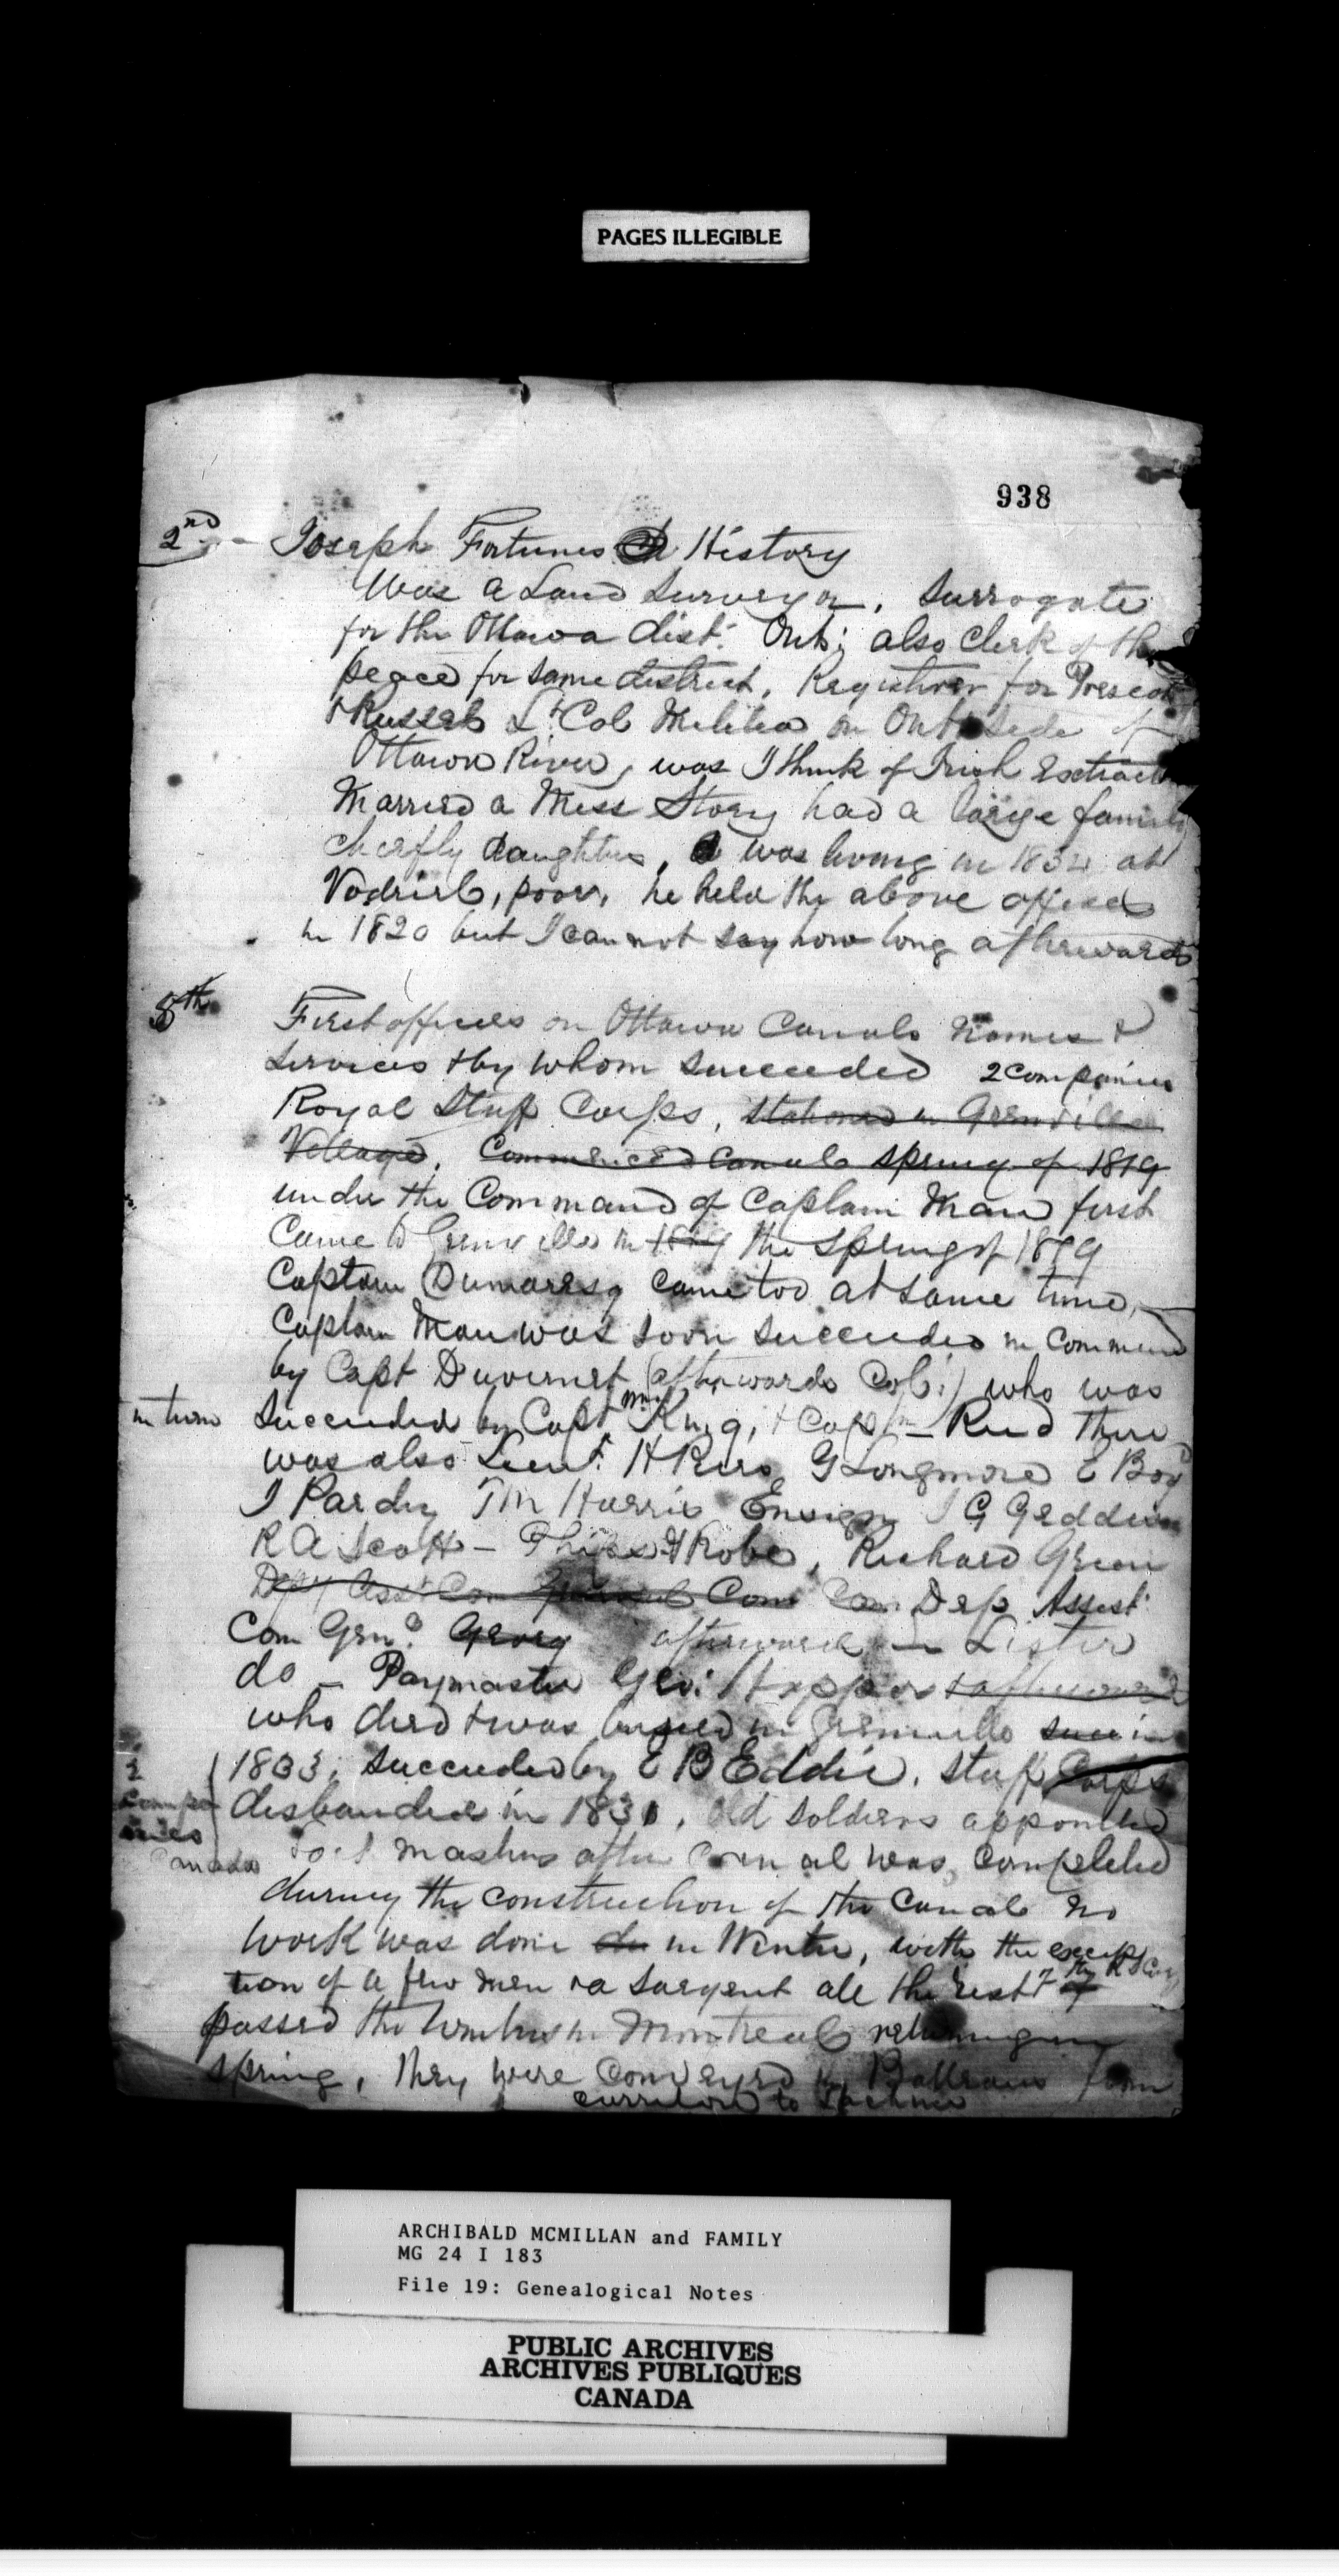 PAGES ILLEGIBLE
938
2nd - Joseph Fortunes History
Was a Land Surveyor, Surrogate
for the Ottawa dist. Ont; also Clerk of the
peace for same district, Registrar for Prescott
& Russel Lt Col Militia on Ont side of
Ottawa River, was I think of Irish Extraction
Married a Miss Story had a large family
cheifly daughters, was living in 1832 at
Vodriel, poor, he held the above offices
in 1820 but I can not say how long afterwards
8th First officers on Ottawa Canals Names &
services & by whom succeeded 2 companies
Royal Staff Corps, stationed in Grenville
Village. Commenced Canals spring of 1819
under the Command of Captain Man first
Came to Grenville in 1819 the spring of 1819
Captain Dumaresq came too at same time,
Captain Man was soon succeeded in command
by Capt Duvernet (afterwards Col.) who was
in turn succeeded by Capt King, & Captn — Reid there
was also Lieut. H Piers G Longmore E Boyd
J Pardy T M Harris Ensign J G Geddes
R A Scott — Robe, Richard Green
Dep Assist
Com Genl. Georg afterwards — Lister
do — Paymaster Geo: Hopper & afterwards
who died & was buried in Grenville in
1833; succeeded by E B Eddie. Staff Corps
2 companies disbanded in 1831, old soldiers appointed
masters after Canal was completed
during the construction of the Canals no
work was done in Winter, with the excep
tion of a few men & a sargent all the rest of the
passed the winters in Montreal returning in
spring, they were conveyed in Batteaus from
Carrilon to Lachine
ARCHIBALD MCMILLAN and FAMILY
MG 24 I 183
File 19: Genealogical Notes
PUBLIC ARCHIVES
ARCHIVES PUBLIQUES
CANADA